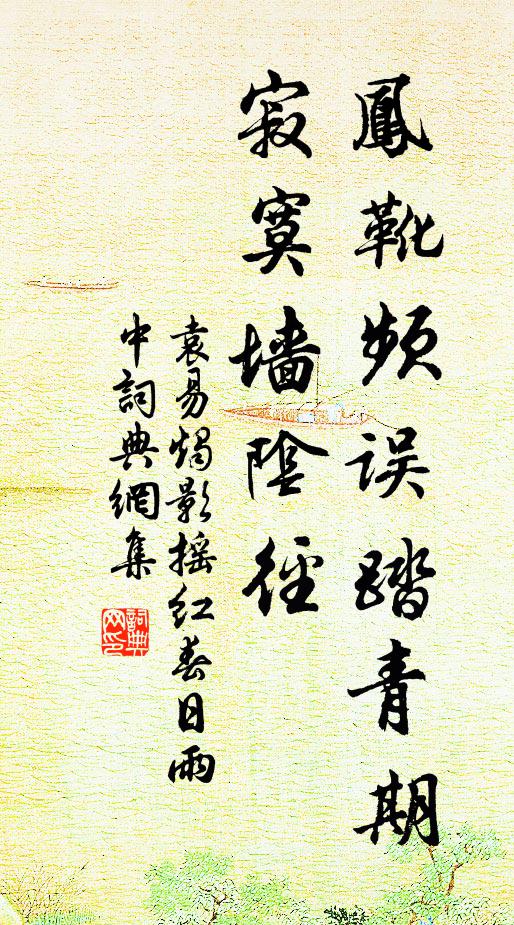 鳳靴頻误踏青期
寂寞墙陰徑
袁易燭影摇红春日雨
中詞典網集
詞典
网印